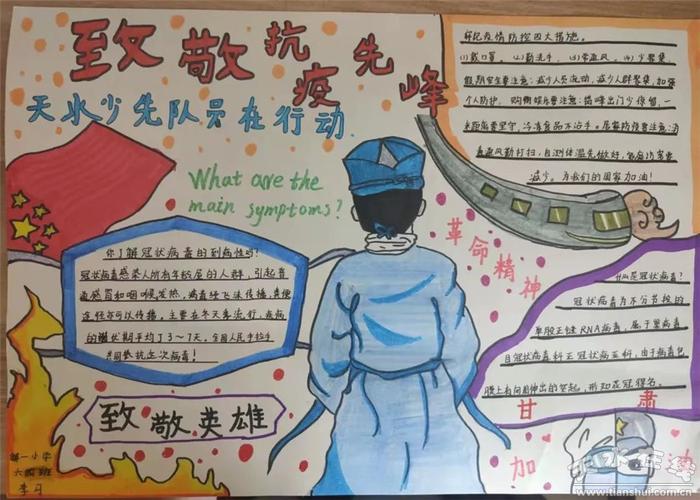 致敬抗疫先峰
天水少先队员在行动
What are the
main symptoms?
你了解冠状病毒的到病性吗?
冠状病毒感染人所有年级层的人群，引起普
通感冒和咽喉发热，病毒经飞沫传播，粪便
途径亦可以传播。主要在冬天春流行，疾病
的潜伏期平均了3～7天。全国人民手拉手
共同参抗击次病毒!
致敬英雄
新冠疫情防控四大措施。
(1)戴口罩。(2)勤洗手。(3)常通风。(4)少聚集。
假期安全要注意:减少人员流动，减少人群聚集，加强
个人防护。购物娱乐要注意:错峰出门少停留，一
米距离要坚守，冷冻食品不沾手。居家防疫要注意:
通风勤打扫，自测体温先做好，
减少。为我们的国家加油!
革命精神
什么是冠状病毒?
冠状病毒为不分节段的
单股正链RNA病毒，属于巢病毒
目冠状病毒科正冠状病毒亚科，由于病毒包
膜上有向四周伸出的突起，形如花冠得名。
甘肃
加油
一小学
六四班
李习
天水在线
www.tianshui.com.cn